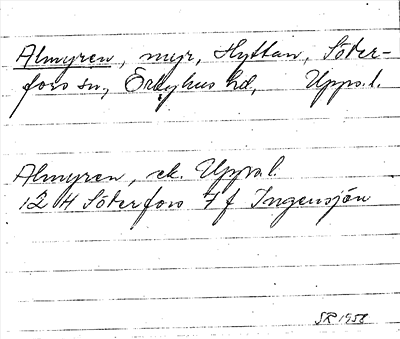 Almyren, myr, Hyttan, Söder-
fors sn, Örbyhus hd, Upps.l.
Almyren, ek. Upps.l.
12 H Söderfors 7 f Ingensjön
SR 1958